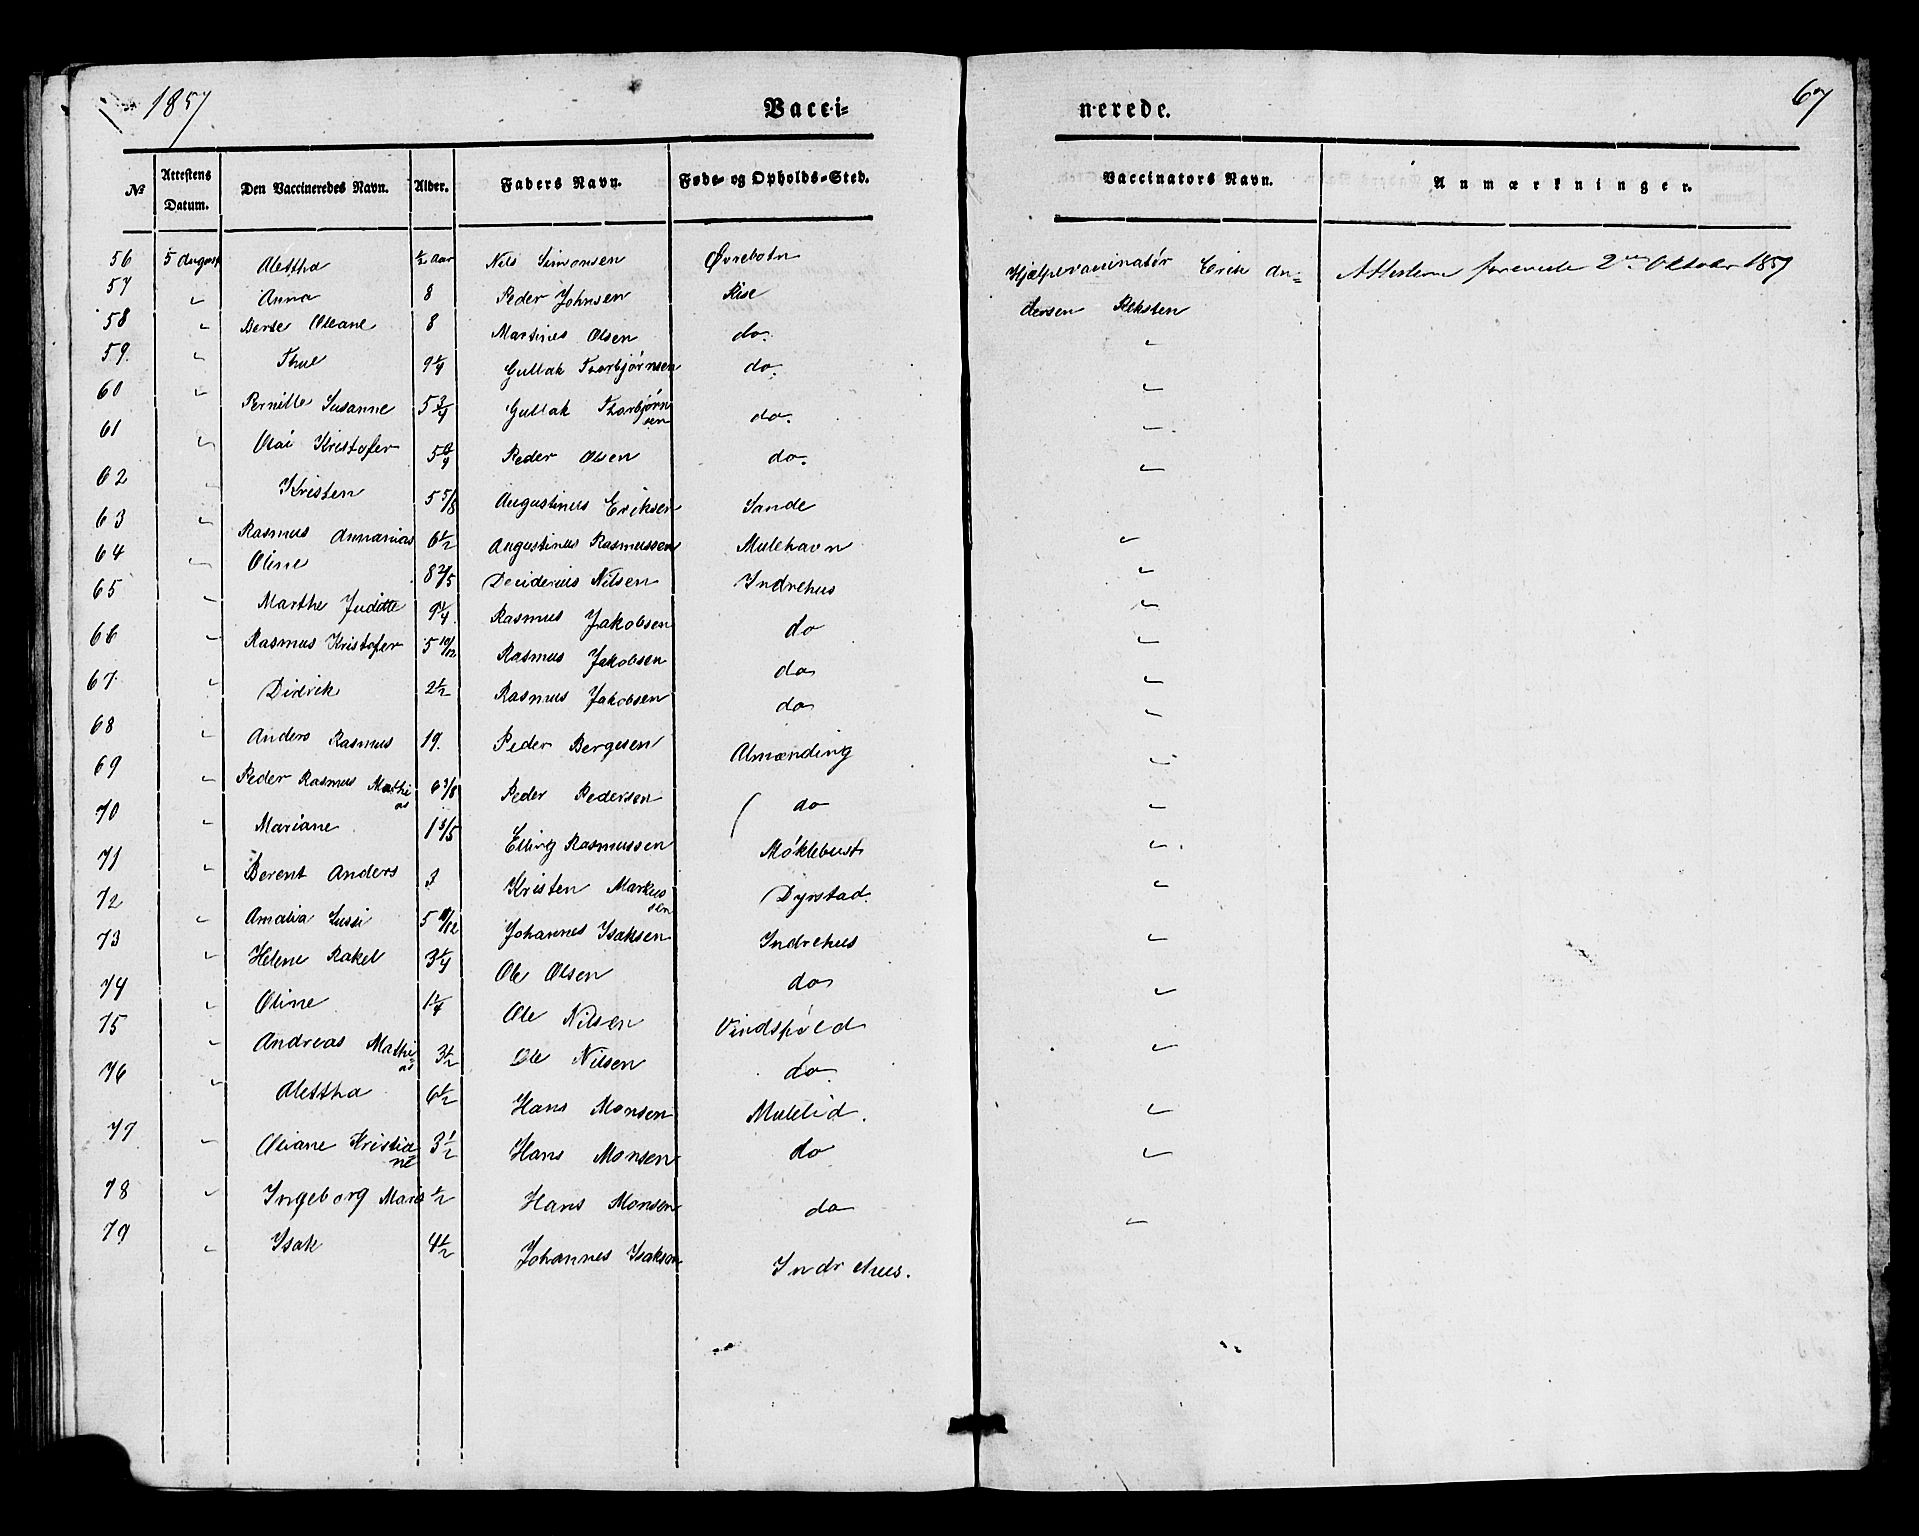 1857 Vacci- nerede. 67
№ Attestens Datum. Den Vaccineredes Navn. Alder. Faders Navn. Føde- og Opholds-Sted. Vaccinators Navn. Anmærkninger.
56 5 August Alettha ½ Aar Nils Simonsen Øvrebotn Hjælpevaccinatør Erick An=
57 " Anna 8 Peder Johnsen Rise dersen Reksten
58 " Berte Oleane 8 Martines Olsen do. "
59. " Thue 9¼ Gullak Torbjørnsen do. "
60 " Pernille Susanne 5¾ Gullak Thorbjørn
sen do. "
61 " Olai Kristofer Peder Olsen do. "
62 " Kristen 5 5/8 Augustinus Eriksen Sande
63 " Rasmus Annanias 6½ Augustinus Rasmussen Mulehavn "
64 " Oline 8 2/5 Deciderius Nilsen Indrehus "
65 " Marthe Juditte 9¼ Rasmus Jakobsen do "
66 " Rasmus Kristofer 5 10/12 Rasmus Jakobsen do "
67. " Didrik 2½ Rasmus Jakobsen do "
68 " Anders Rasmus 19. Peder Bergesen Almænding "
69 " Peder Rasmus Mathi
as Peder Pedersen do "
70 " Mariane Elling Rasmussen Møklebust "
71 " Berent Anders 3 Kristen Markus
sen Dyrstad. "
72 " Amalia Sussi Johannes Isaksen Indrehus "
73 " Helene Rakel 3¼ Ole Olsen do "
74 " Oline 1¼ Ole Nilsen Vindspøld "
75 " Andreas Mathi=
as 3½ Ole Nilsen do "
76 " Alettha 6½ Hans Monsen Mulelid. "
77 " Oliane Kristia
ne 3½ Hans Monsen do "
78 " Ingeborg Marie ½ Hans Monsen do "
79 " Isak 4½ Johannes Isaksen Indrehus. "
2den Oktober 1857